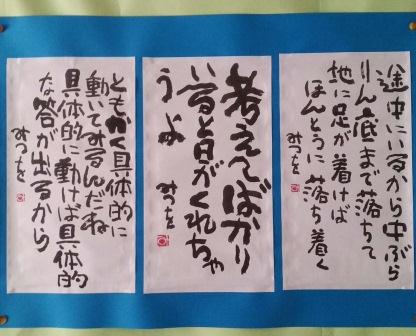 途中にいるから中ぶら
りん底まで落ちて
地に足が着けば
ほんとうに落ち着く
みつを
考えてばかり
いると日がくれちゃ
うよ
みつを
ともかく具体的に
動いてみるんだね
具体的に動けば具体的
な答が出るから
みつを